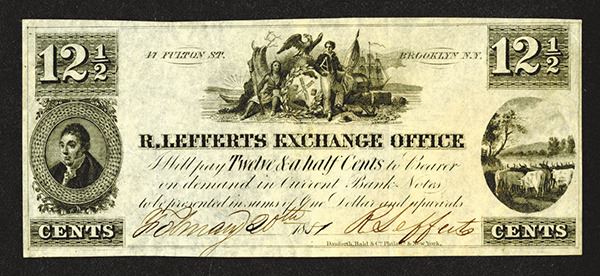 12½ 12½
47 FULTON ST. BROOKLYN N.Y.
R. LEFFERTS EXCHANGE OFFICE
Will pay Twelve & a half Cents to Bearer
on demand in Current Bank-Notes
to be presented in sums of One Dollar and upwards
February 20th 18 R Lefferts
CENTS CENTS
Danforth, Bald & Co. Philada. & New York.